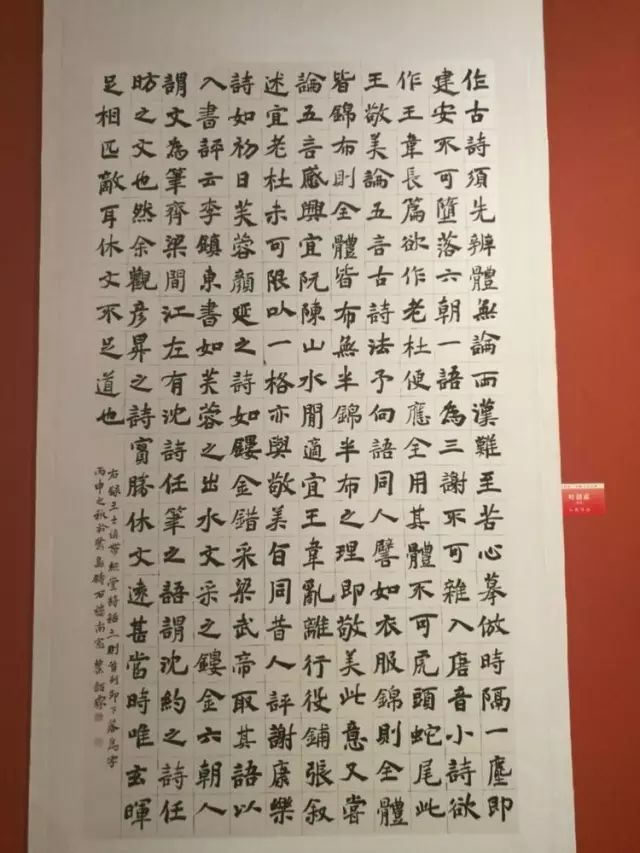 作古詩須先辨體無論兩漢難至苦心摹倣時隔一塵即
建安不可墮落六朝一語為三謝不可雜入唐音小詩欲
作王韋長篇欲作老杜便應全用其體不可虎頭蛇尾此
王敬美論五言古詩法予向語同人譬如衣服錦則全體
皆錦布則全體皆布無半錦半布之理即敬美此意又嘗
論五言感興宜阮陳山水閒適宜王韋亂離行役鋪張叙
述宜老杜未可限以一格亦與敬美旨同昔人評謝康樂
詩如初日芙蓉顏延之詩如鏤金錯采梁武帝取其語以
入書評云李鎮東書如芙蓉之出水文采之鏤金六朝人
謂文為筆齊梁間江左有沈詩任筆之語謂沈約之詩任
昉之文也然余觀彥昇之詩實勝休文遠甚當時唯玄暉
足相匹敵耳休文不足道也
右録王士禎帶經堂詩話三則首列印下落為字
丙申之秋於鷺島磚石樓南窗